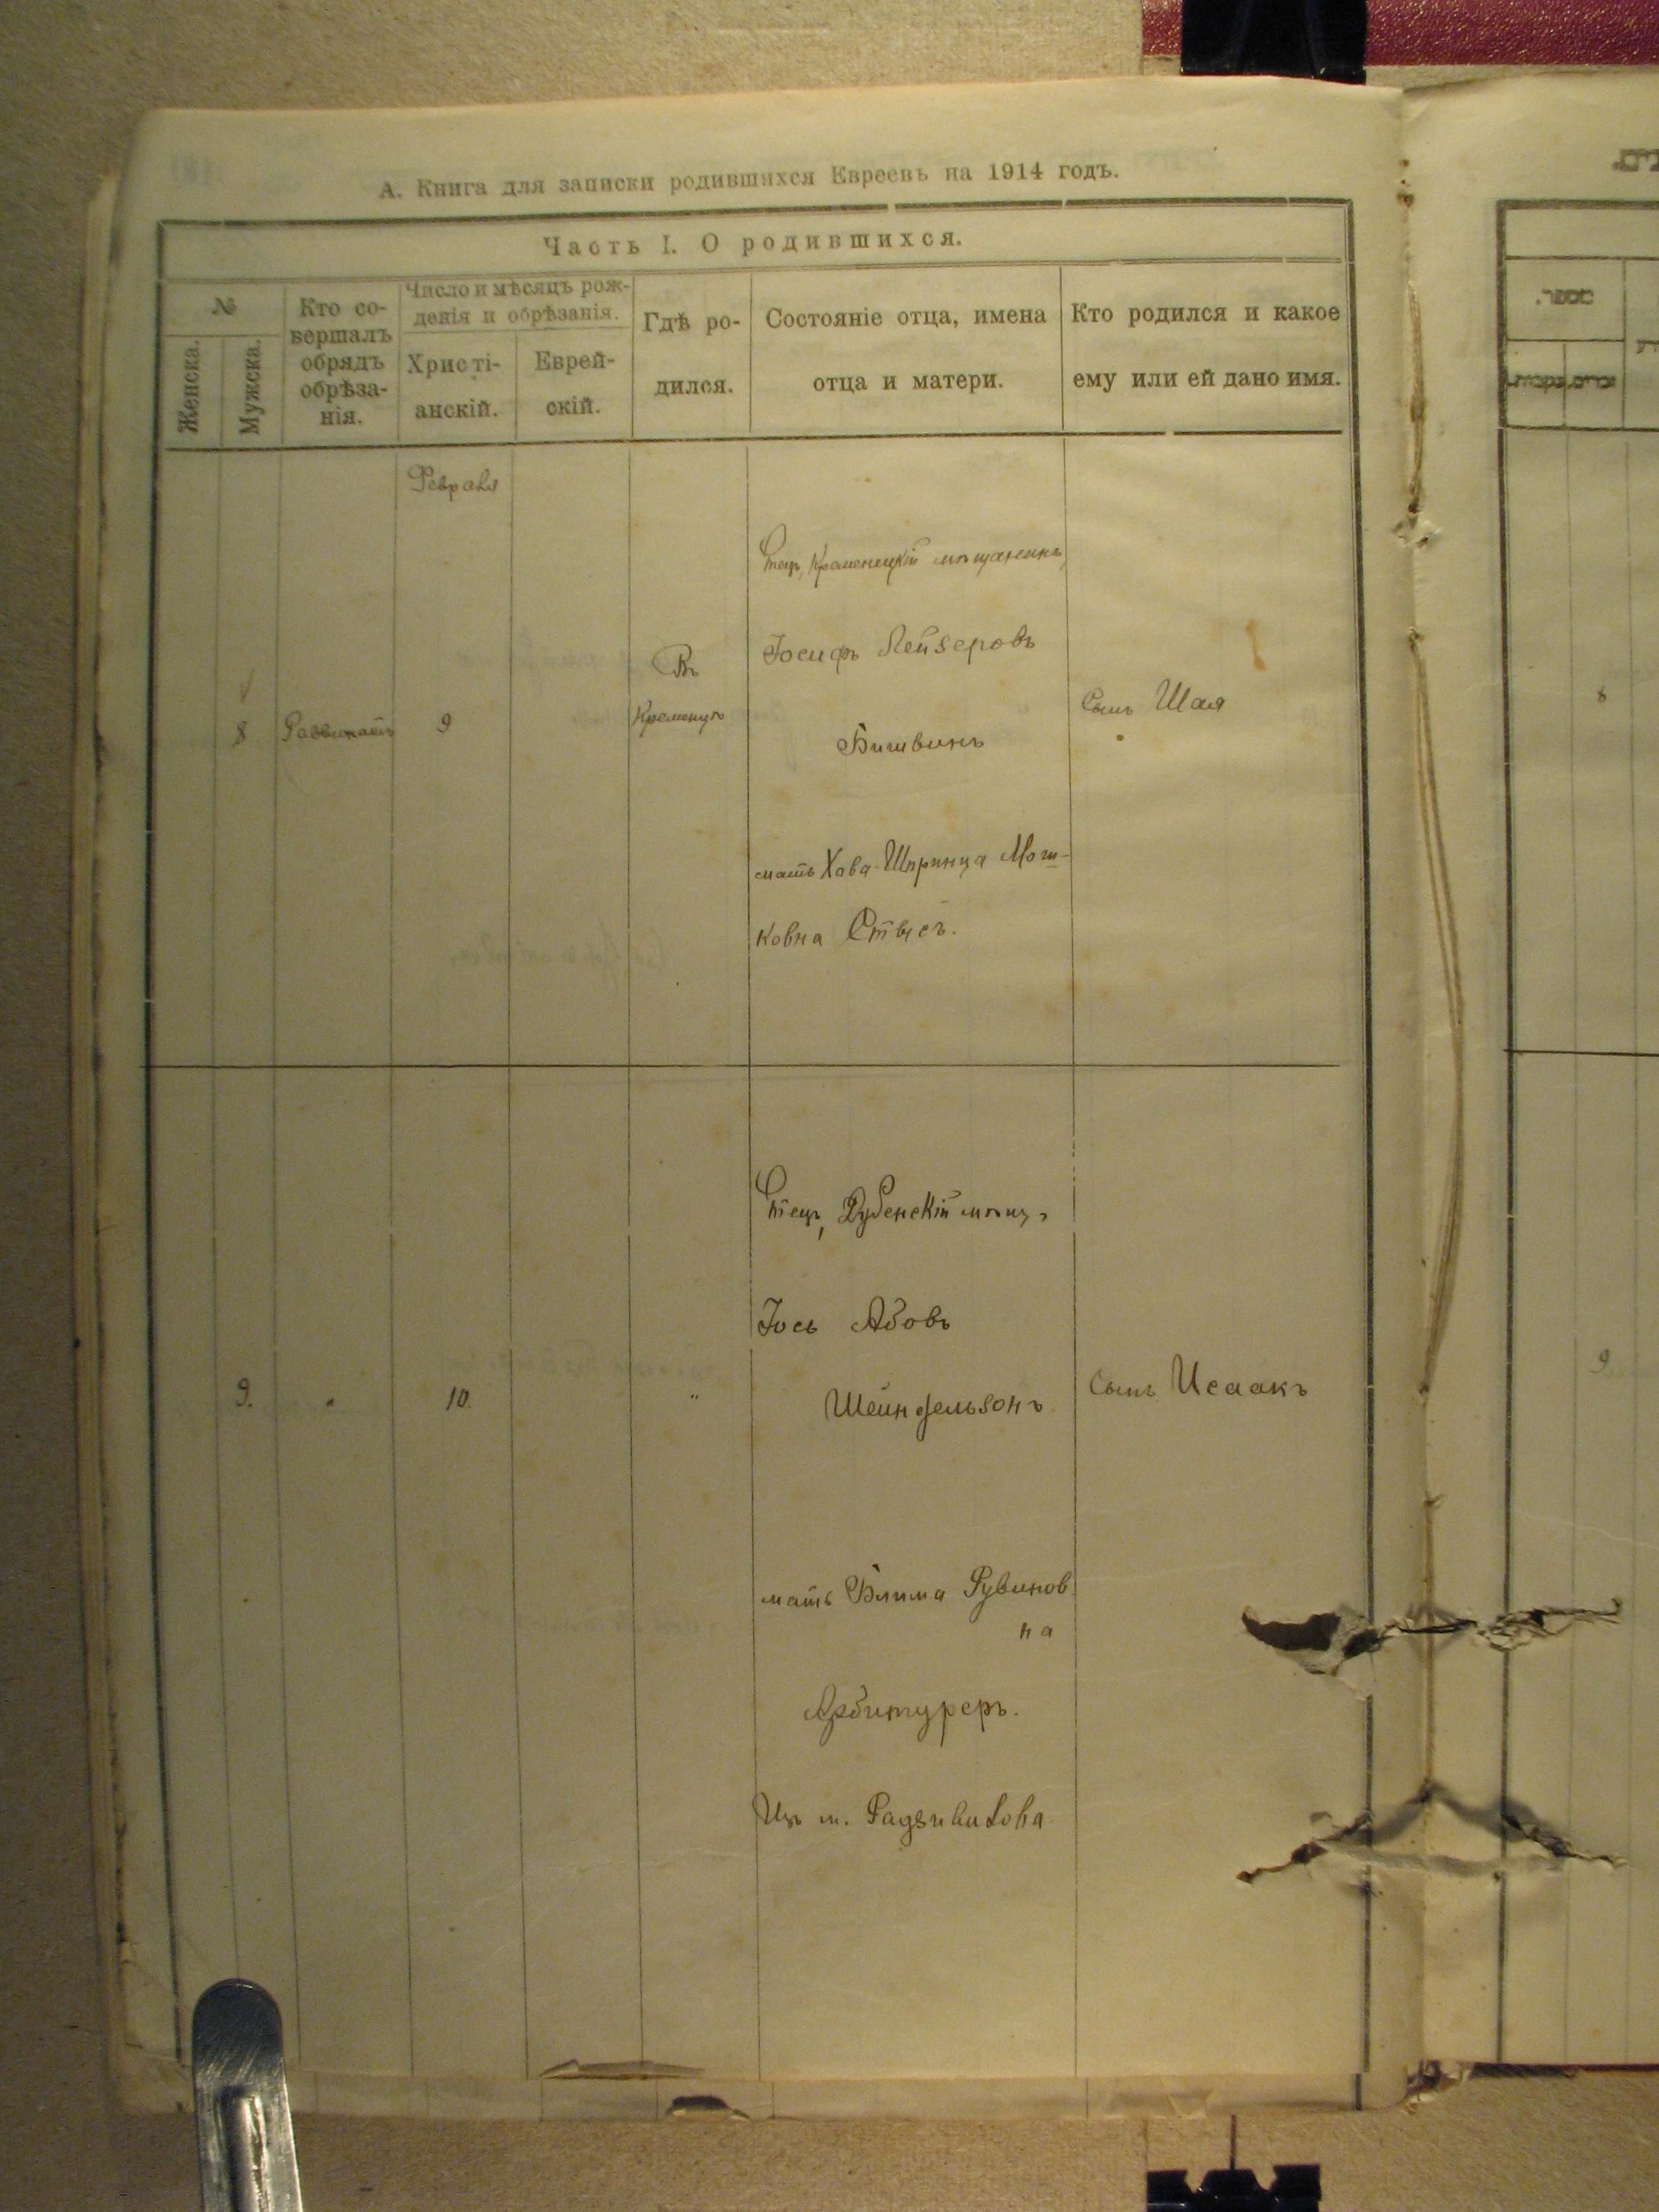 А. Книга для записки родившихся Евреевъ на 1914 годъ.
Часть I. О родившихся.
№
Женска.
Мужска.
Кто со-
вершалъ
обрядъ
обрѣза-
нія.
Число и мѣсяцъ рож-
денія и обрѣзанія.
Христі-
анскій.
Еврей-
скій.
Гдѣ ро-
дился.
Состояніе отца, имена
отца и матери.
Кто родился и какое
ему или ей дано имя.
Февраля
8
9
Въ
Кременцѣ
Отецъ, Кременецкій мѣщанинъ,
Іосифъ Лейзеровъ
мать Хова-Шпринца Мош-
ковна
Сынъ Шая
9.
"
10.
"
Отецъ, Дубенскій мѣщ.
Іось Абовъ
Шейнфельзонъ
мать Блима Рувинов
на
Арбитуреръ.
Изъ м. Радзивилова
Сынъ Исаакъ
8
9